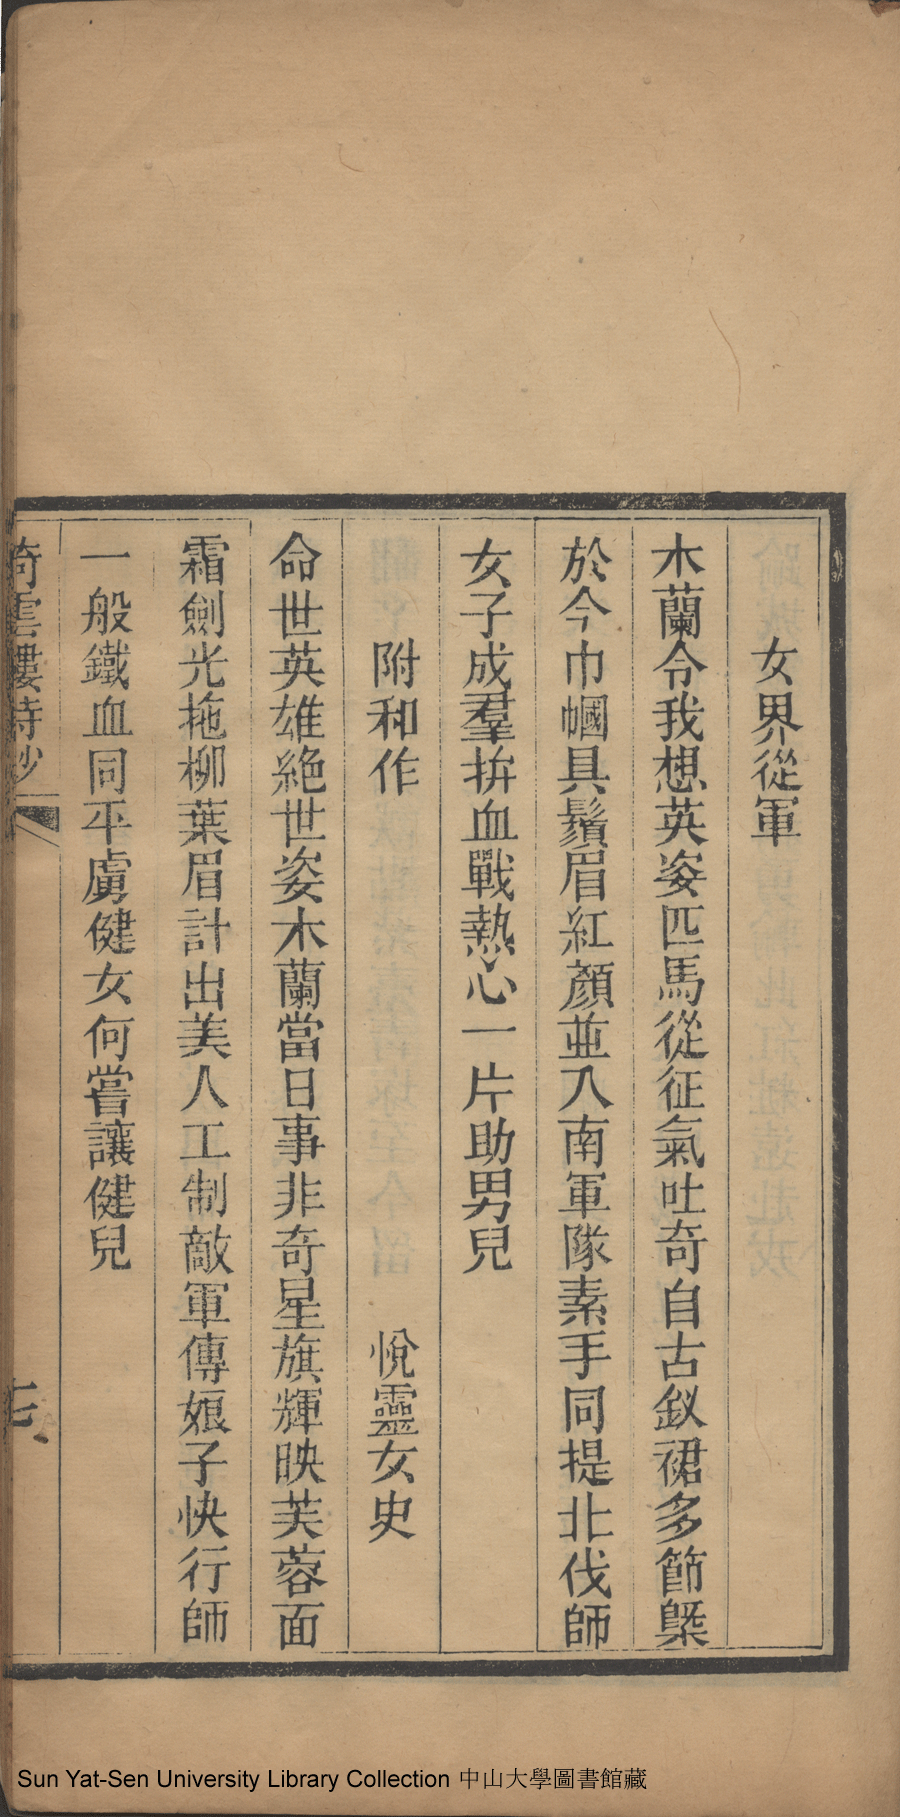 女界從軍
木蘭令我想英姿匹馬從征氣吐奇自古釵裙多節槩
於今巾幗具鬚眉紅顏並入南軍隊素手同提北伐師
女子成羣拚血戰熱心一片助男兒
附和作　悅靈女史
命世英雄絕世姿木蘭當日事非奇星旗輝映芙蓉面
霜劍光拖柳葉眉計出美人工制敵軍傳娘子快行師
一般鐵血同平虜健女何嘗讓健兒
倚雲樓詩鈔
七
Sun Yat-Sen University Library Collection 中山大學圖書館藏